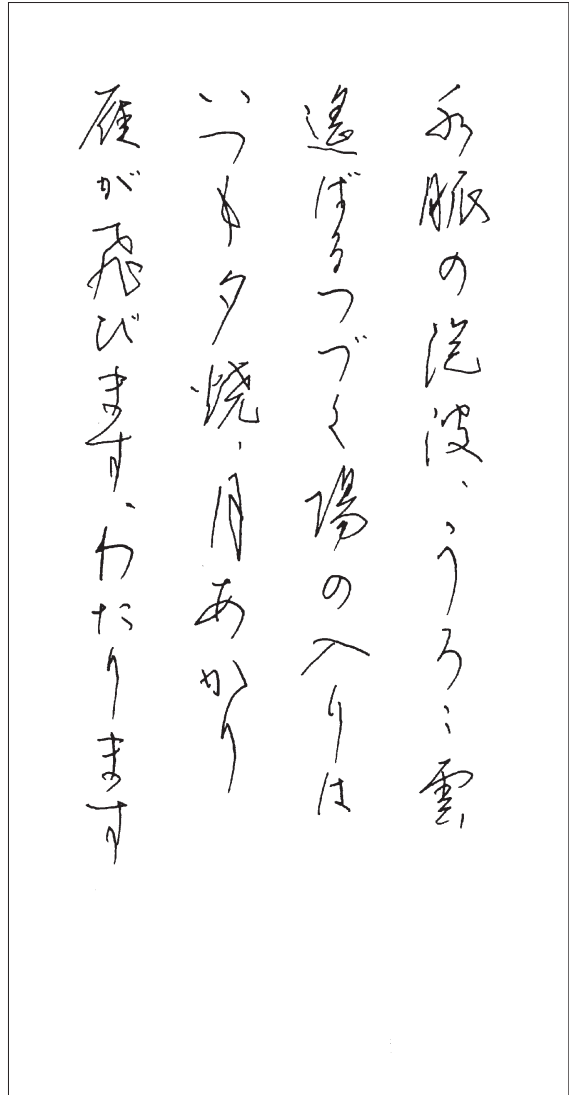 水脈の波、うろこ雲
遙ばるつづく陽の入りは
いつも夕焼、月あかり
雁が飛びます、わたります